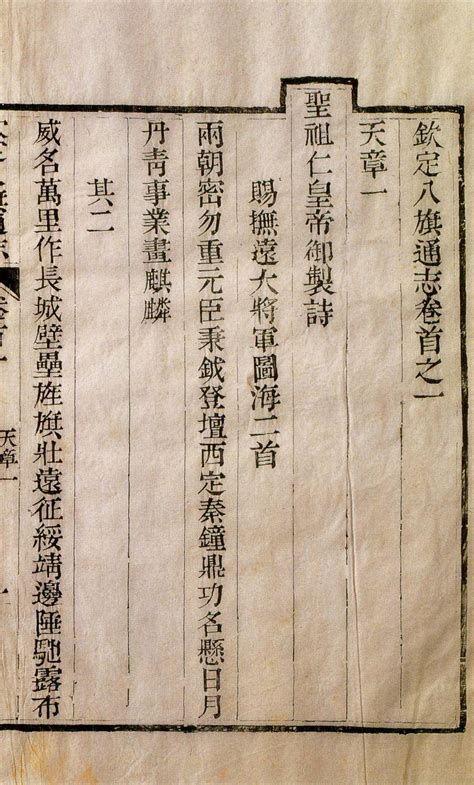 欽定八旗通志卷首之一
天章一
聖祖仁皇帝御製詩
賜撫遠大將軍圖海二首
兩朝密勿重元臣秉鉞登壇西定秦鐘鼎功名懸日月
丹靑事業畫麒麟
其二
威名萬里作長城壁壘旌旗壯遠征綏靖邊陲馳露布
天章一